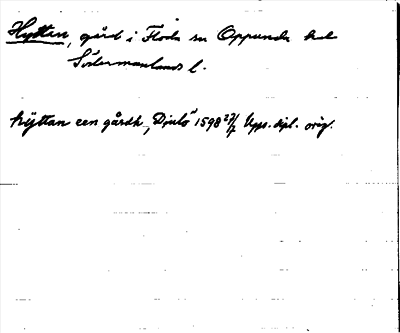 Hyttan, gård i Floda sn Oppunda hd
Södermanlands l.
hÿttan een gårdh, "Djulö" 1598 27/7 Upps. dpl. orig.